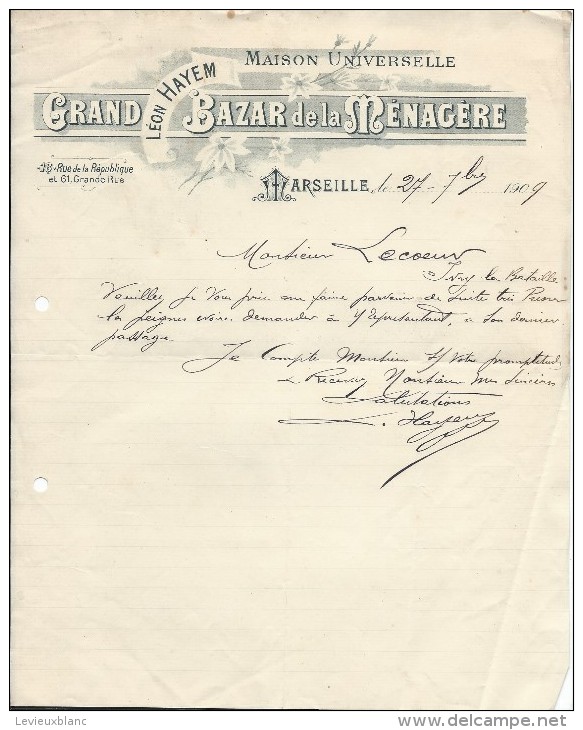 MAISON UNIVERSELLE
LÉON HAYEM
GRAND BAZAR de la MÉNAGÈRE
18, Rue de la République
et 61, Grande Rue
MARSEILLE, le 27 - 7bre 1909
Monsieur Lecoeur
Ivry la Bataille
Veuillez je vous prie me faire parvenir de suite très Pressé
les peignes ivoire demander à V/ Représentant, a son dernier
passage
Je Compte Monsieur S/ Votre promptitude
& Recevez Monsieur mes Sincères
Salutations
L. Hayem
Levieuxblanc
www.delcampe.net